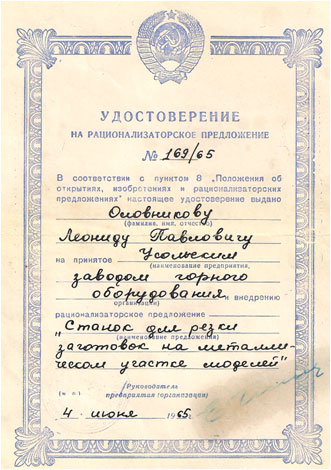 УДОСТОВЕРЕНИЕ
НА РАЦИОНАЛИЗАТОРСКОЕ ПРЕДЛОЖЕНИЕ
№ 169/65
В соответствии с пунктом 8 „Положения об
открытиях, изобретениях и рационализаторских
предложениях" настоящее удостоверение выдано
Оловникову
(фамилия, имя, отчество)
Леониду Павловичу
на принятое Усольским
(наименование предприятия,
заводом горного
оборудования к внедрению
организации)
рационализаторское предложение
„Станок для резки
(наименование предложения)
заготовок на металли-
ческом участке моделей"
Руководитель
предприятия (организации)
4 июня 1965г.